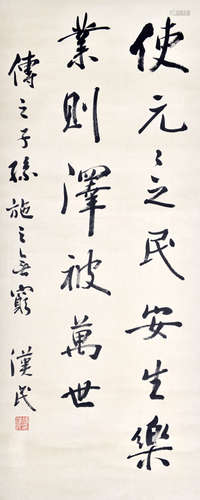 使元〻之民安生樂
業則澤被萬世
傳之子孫施之無窮
漢民